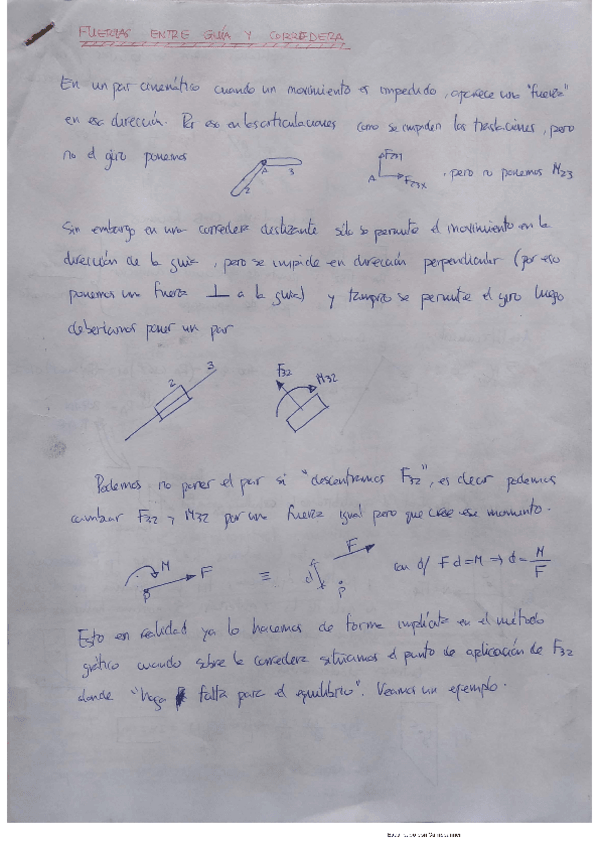 FUERZAS ENTRE GUÍA Y CORREDERA
En un par cinemático cuando un movimiento es impedido, aparece una "fuerza"
en esa dirección. Por eso en las articulaciones como se impiden las traslaciones, pero
no el giro ponemos
A 2 3
A F23X , pero no ponemos M23
Sin embargo en una corredera deslizante sólo se permite el movimiento en la
dirección de la guía, pero se impide en dirección perpendicular (por eso
ponemos una fuerza ⊥ a la guía) y tampoco se permite el giro luego
deberíamos poner un par
2 3
F32 M32
Podemos no poner el par si "descentramos F32", es decir podemos
cambiar F32 y M32 por una fuerza igual pero que cree ese momento.
M F P ≡ F d P con d/ F d = M ⇒ d = M/F
Esto en realidad ya lo hacemos de forma implícita en el método
gráfico cuando sobre la corredera situamos el punto de aplicación de F32
donde "haga falta para el equilibrio". Veamos un ejemplo.